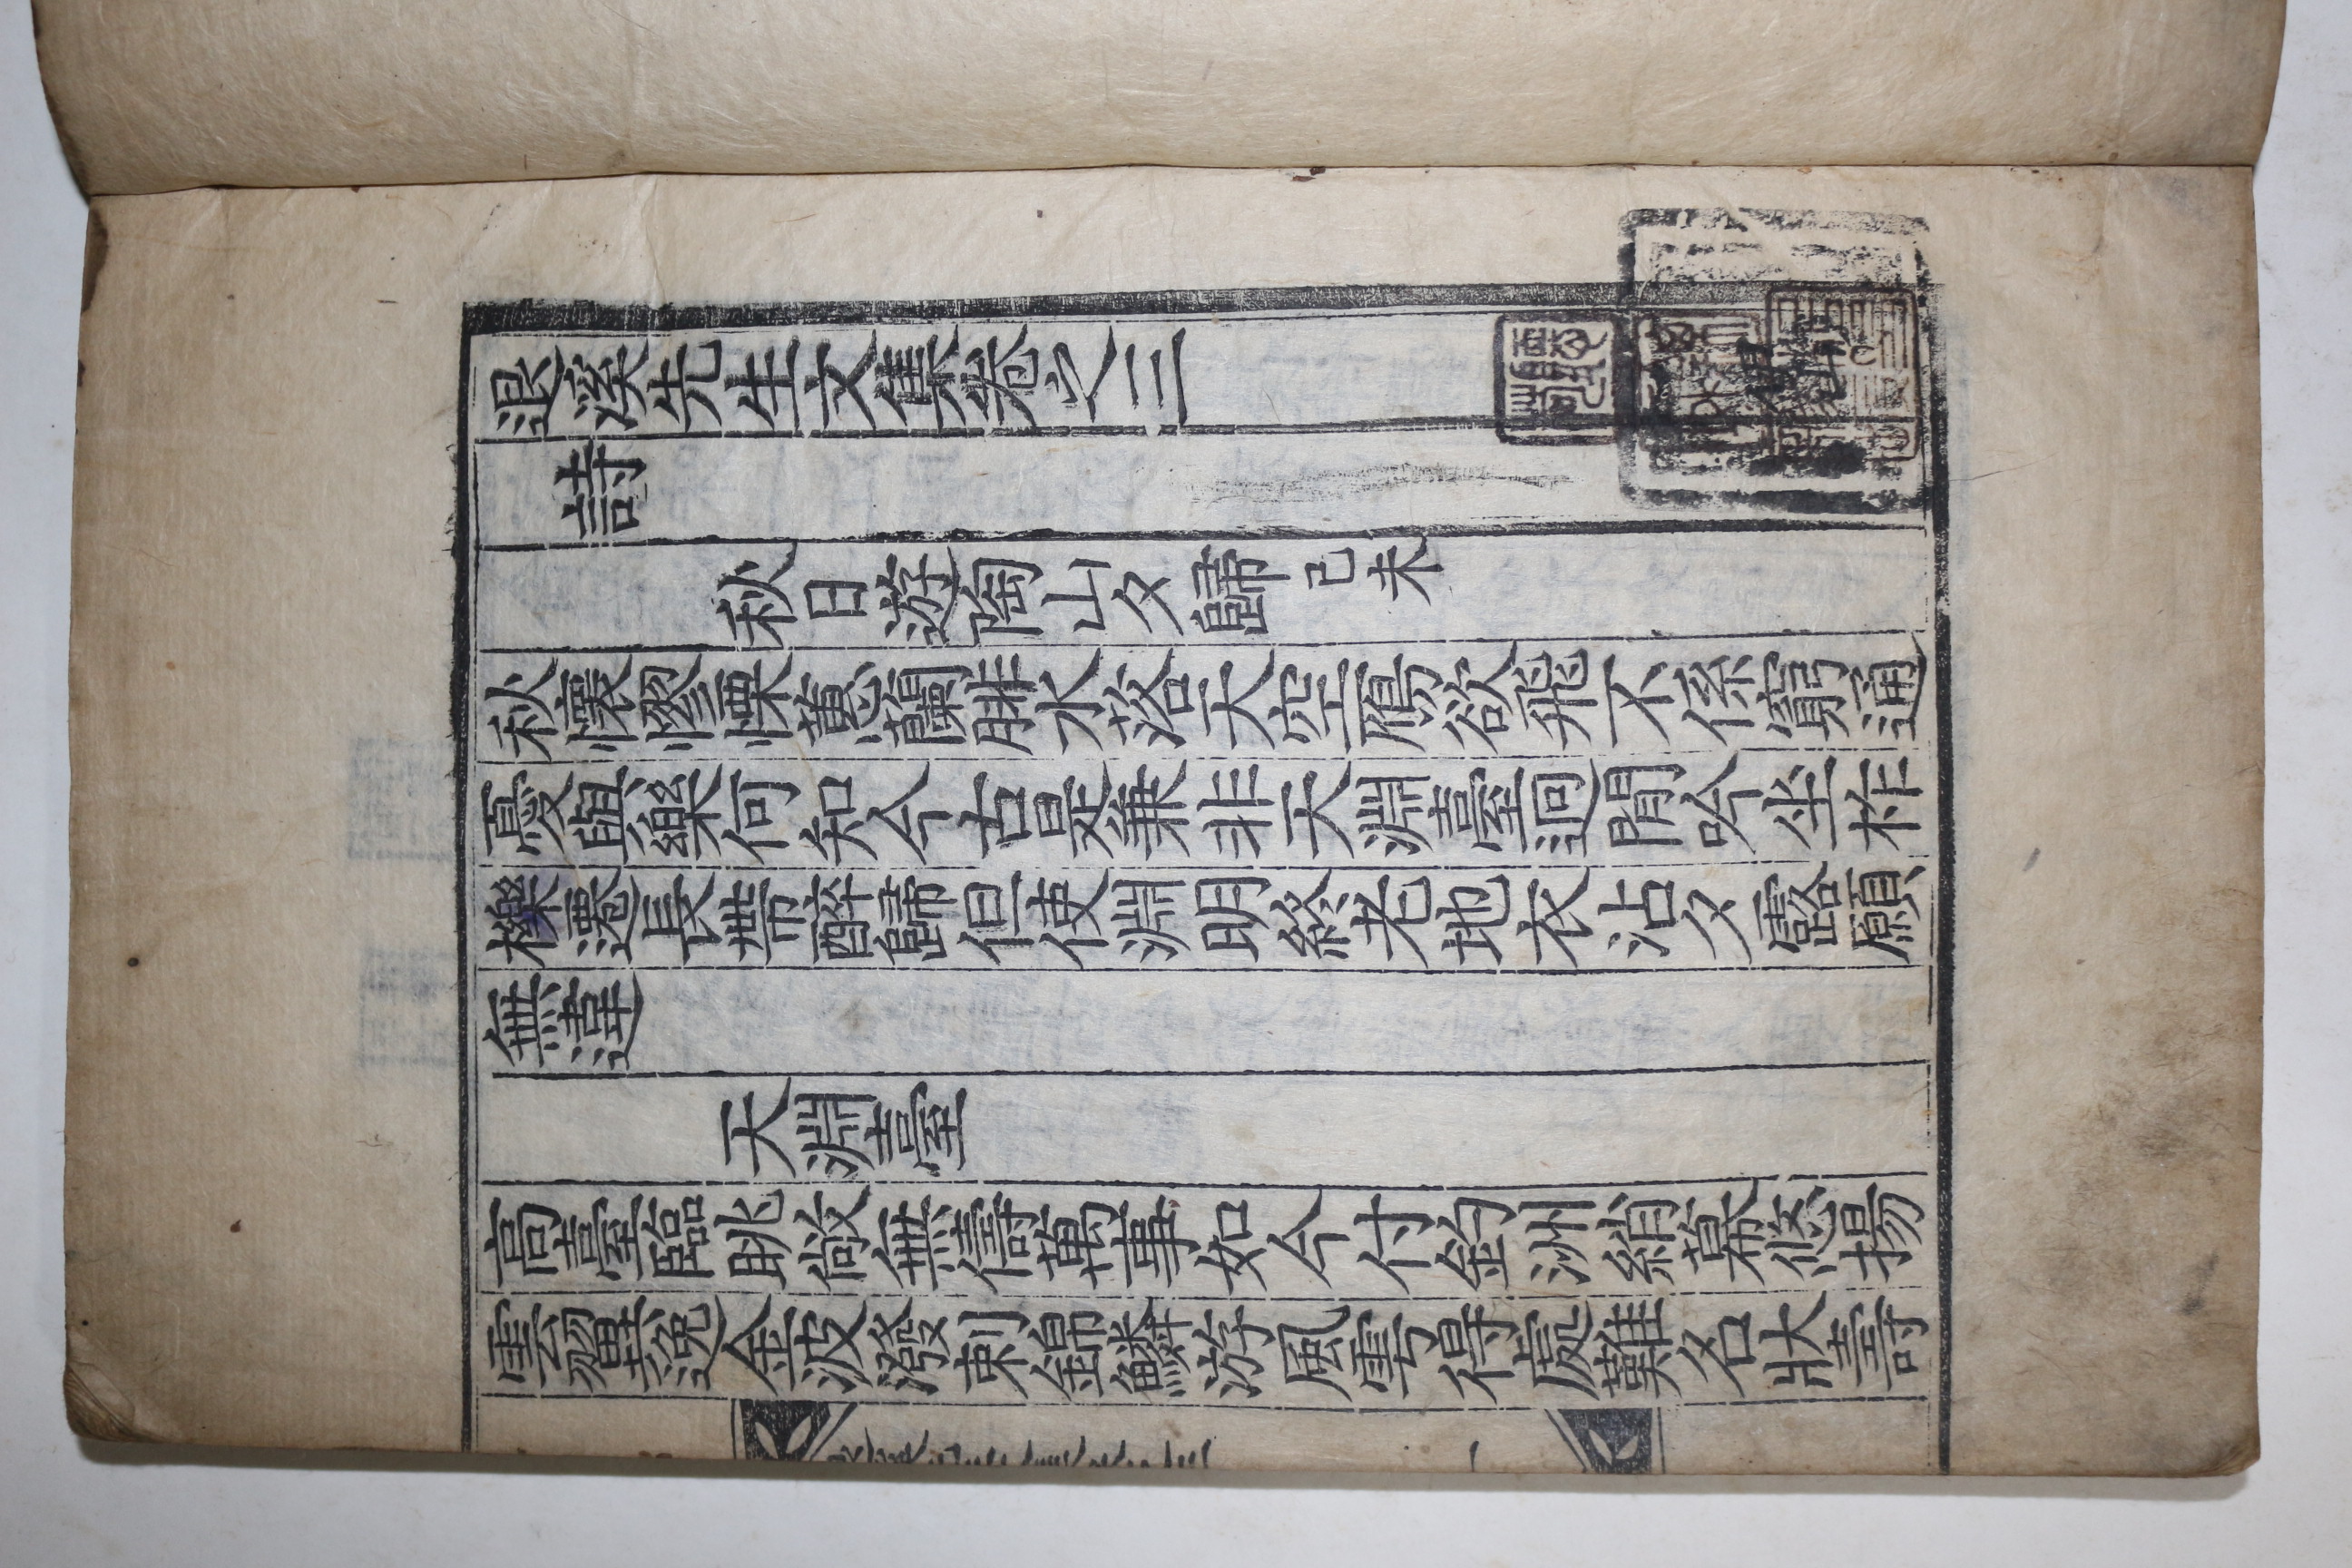 退溪先生文集卷之三
詩
秋日遊陶山夕歸己未
秋懷憀慄蕙蘭腓水落天空鴈欲飛不係窮通
憂與樂何知今古是兼非天淵臺迥閒吟坐柞
櫟遷長帶醉歸但使淵明終老地衣沾夕露願
無違
天淵臺
高臺臨眺敞無儔萬事如今付釣洲綃幕悠揚
雲翼逸金波潑剌錦鱗游風雩得處難名狀壽